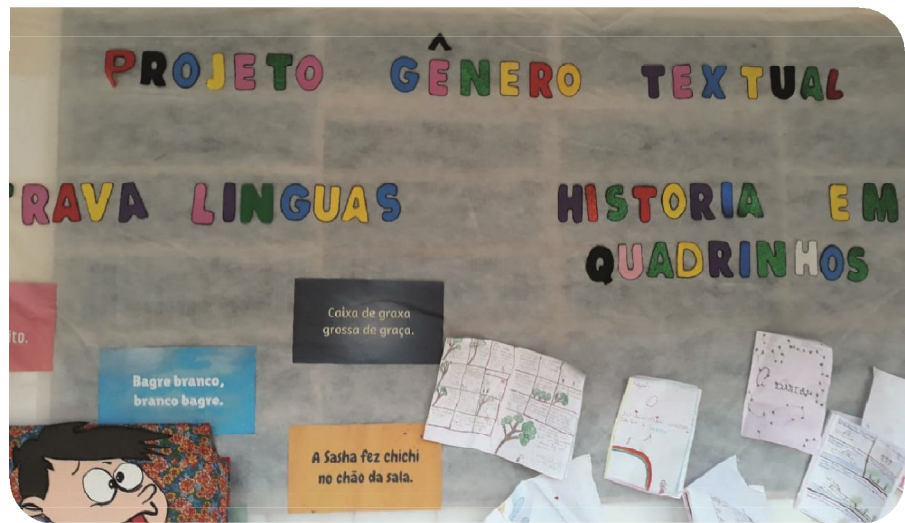 PROJETO GÊNERO TEXTUAL
RAVA LINGUAS
HISTORIA EM
QUADRINHOS
ito.
Caixa de graxa
grossa de graça.
Bagre branco,
branco bagre.
A Sasha fez chichi
no chão da sala.